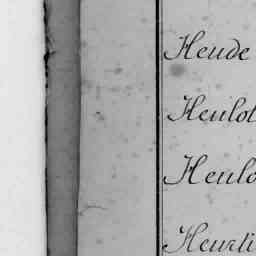 Heude
Heulot
Heulo
Heurti